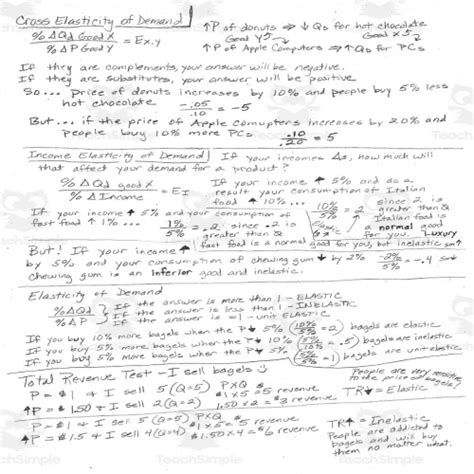 Cross Elasticity of Demand
%ΔQd Good X / %ΔP Good Y = Ex,y
↑P of donuts ⇒ ↓Qs for hot chocolate
Good Y Good X
↑P of Apple Computers ⇒ ↑Qs for PCs
If they are complements, your answer will be negative.
If they are substitutes, your answer will be positive
So... Price of donuts increases by 10% and people buy 5% less
hot chocolate -.05/.10 = -5
But... if the price of Apple Comupters increases by 20% and
people buy 10% more PCs .10/.20 = 5
Income Elasticity of Demand If your incomes Δs, how much will
that affect your demand for a product?
%ΔQd good X / %Δ Income = EI
If your income ↑ 5% and as a
result your consumption of Italian
food ↑ 10%... 10%/5% = 2 since 2 is
greater than 0
Italian food is
a normal good
for you. Luxury
If your income ↑ 5% and your consumption of
fast food ↑ 1%... 1%/5% = .2 since .2 is
greater than 0
fast food is a normal good for you, but inelastic
But! If your income ↑
by 5% and your consumption of chewing gum ↓ by 2% -2%/5% = -.4
chewing gum is an inferior good and inelastic.
Elasticity of Demand
%ΔQd / %ΔP
If the answer is more than 1 - ELASTIC
If the answer is less than 1 - INELASTIC
If the answer is = 1 - unit ELASTIC
If you buy 10% more bagels when the P↓ 5% (10%/5% = 2) bagels are elastic
If you buy 5% more bagels when the P↓ 10% (5%/10% = .5) bagels are inelastic
If you buy 5% more bagels when the P↓ 5% (5%/5% = 1) bagels are unit elastic
Total Revenue Test - I sell bagels
People are very sensitive
to the price of bagels!
P = $1 + I sell 5 (Q=5) PXQ 1x5 = 5 revenue
↑P = $1.50 + I sell 2 (Q=2) 1.50 x 2 = $3 revenue
TR↓ = Elastic
P = $1 + I sell 5 (Q=5) PXQ $1 x 5 = $5 revenue
↑P = $1.5 + I sell 4 (Q=4) $1.50 x 4 = $6 revenue
TR↑ = Inelastic
People are addicted to
bagels and will buy
them no matter what.
TeachSimple